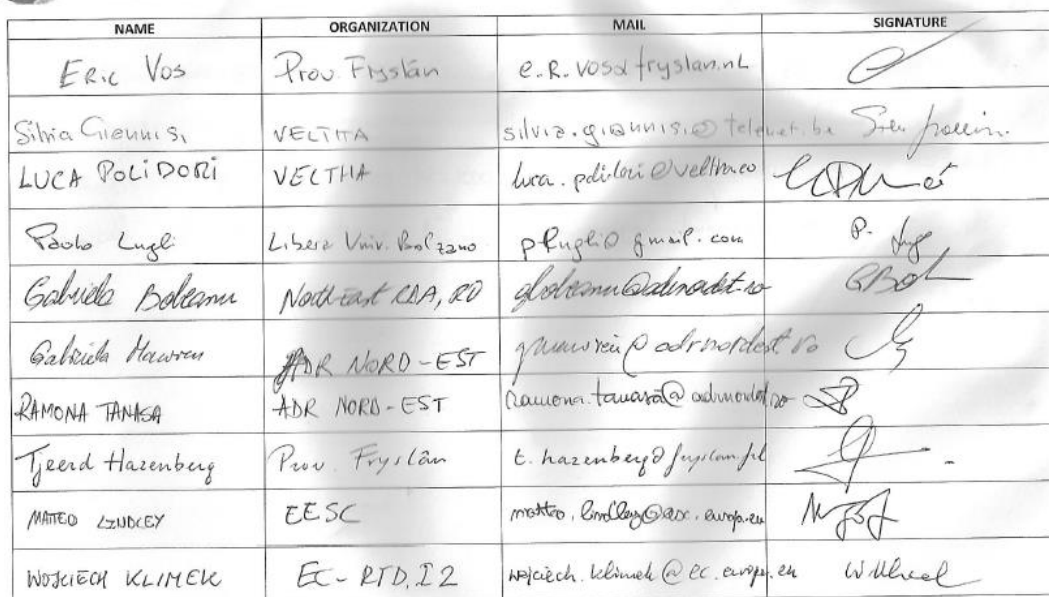 NAME ORGANIZATION MAIL SIGNATURE
Eric Vos Prov. Fryslân e.R.vos@fryslan.nl
Silvia Giannisi VELTHA silvia.giannisi@telenet.be
LUCA POLIDORI VELTHA luca.polidori@veltha.eu
Paolo Lugli Libera Univ. Bolzano plugli@gmail.com P. Lug
Gabriela Boleanu North-East RDA, RO gboleanu@adrnordest.ro GBol
Gabriela ADR NORD-EST @adrnordest.ro
RAMONA TANASA ADR NORD-EST ramona.tanasa@adrnordest.ro
Tjeerd Hazenberg Prov. Fryslân t.hazenberg@fryslan.frl
MATTEO LINDLEY EESC matteo.lindley@eesc.europa.eu
WOJCIECH KLIMEK EC-RTD.I2 wojciech.klimek@ec.europa.eu